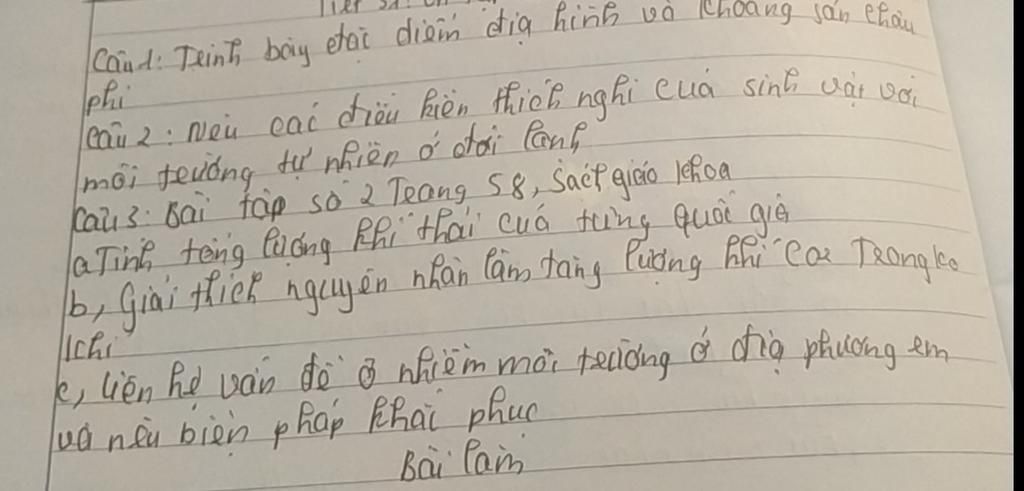 Câu1: Trình bày đặc điểm địa hình và khoáng sản châu
phi
Câu 2: Nêu các điều kiện thích nghi của sinh vật với
môi trường tự nhiên ở đới lạnh
Câu 3: Bài tập số 2 Trang 58, sách giáo khoa
a Tính tổng lượng khí thải của từng quốc gia
b, Giải thích nguyên nhân làm tăng lượng khí Co2 Trong ko
khí
c, liên hệ vấn đề ô nhiễm môi trường ở địa phương em
và nêu biện pháp khắc phục
Bài làm